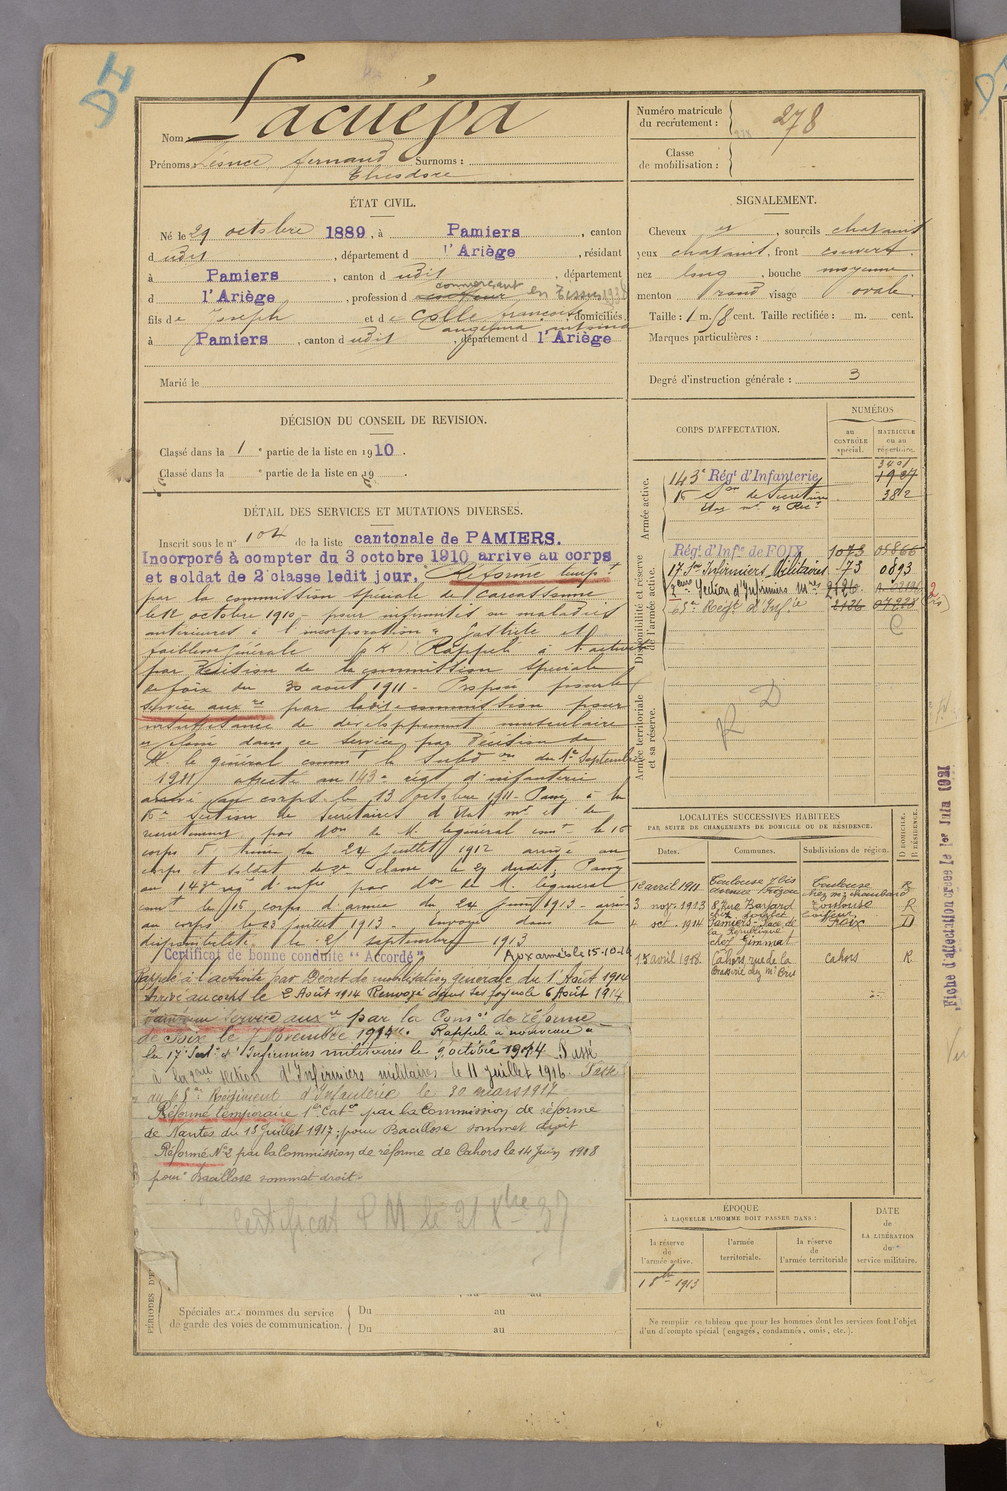 Nom : Lacuépa
Prénoms : Léonce Fernand Surnoms :
Théodore
Numéro matricule
du recrutement : 278
Classe
de mobilisation :
ÉTAT CIVIL.
Né le 29 octobre 1889, à Pamiers, canton
d udit, département d l'Ariège, résidant
à Pamiers, canton d udit, département
commerçant en tissus
d l'Ariège, profession d
fils de Joseph et de Colle françoise domiciliés
angelina antoinia
à Pamiers, canton d udit, département d l'Ariège
Marié le
SIGNALEMENT.
Cheveux et, sourcils chatains
yeux chatains, front couvert
nez long, bouche moyenne
menton rond visage ovale
Taille : 1 m. 58 cent. Taille rectifiée : m. cent.
Marques particulières :
Degré d'instruction générale : 3
DÉCISION DU CONSEIL DE REVISION.
Classé dans la 1e partie de la liste en 1910.
Classé dans la e partie de la liste en 19
DÉTAIL DES SERVICES ET MUTATIONS DIVERSES.
Inscrit sous le n° 104 de la liste cantonale de PAMIERS.
Incorporé à compter du 3 octobre 1910, arrive au corps
et soldat de 2e classe ledit jour. Réformé tempre
par la commission spéciale de Carcassonne
le 12 octobre 1910 pour infirmités ou maladies
antérieures à l'incorporation " Gastrite et
faiblesse générale Rappelé à l'activité
par décision de la commission spéciale
de foix du 30 aout 1911. Proposé pour le
service auxre par ladite commission pour
insuffisance de développement musculaire
et classé dans ce service par Décision de
M. le général commt la Subdon du 1er Septembre
1911 affecté au 143e régt d'infanterie
arrivé au corps le 13 octobre 1911. Passé à la
16e section de Secrétaires d'Etat mor et de
recrutement par don de M. le général comt le 16
corps d'armée du 24 juillet 1912 arrivé au
corps et soldat de 2e classe le 29 dudit. Passé
au 143e rég d'infie par don de M. le général
comt le 16 corps d'armée du 24 juin 1913 arrivé
au corps le 23 juillet 1913. envoyé dans la
disponibilité le 25 septembre 1913
Certificat de bonne conduite "Accordé" Aux armées le 15-10-14
Rappelé à l'activité par Décret de mobilisation générale du 1 Août 1914
Arrivé au corps le 2 Août 1914 Renvoyé dans ses foyers le 6 Août 1914
Service auxre par la Comon de réforme
de Foix le 7 Novembre 1914. Rappelé à nouveau à
la 17e Secton d'Infirmiers militaires le 9 octobre 1914 Passé
à la 2me section d'Infirmiers militaires le 11 juillet 1916. Passé
au 65e Régiment d'Infanterie le 30 mars 1917
Réformé temporaire 1ère Catie par la Commission de réforme
de Nantes du 13 juillet 1917; pour Bacillose sommet droit
Réformé N°2 par la Commission de réforme de Cahors le 14 juin 1918
pour Bacillose sommet droit.
Certificat P M le 21 Xbre 37
Spéciales aux hommes du service
de garde des voies de communication.
Du au
Du au
CORPS D'AFFECTATION.
NUMÉROS
au
CONTRÔLE
spécial.
MATRICULE
ou au
répertoire.
Armée active.
143e Régt d'Infanterie 3401
1927
16 Son de Secrétaires 382
Disponibilité et réserve
de l'armée active.
Régt d'Infie de FOIX 1073 05866
17. Son Infirmiers Militaires 573 0893
2eme Section d'Infirmiers mres
65e Régt d'Infie
Armée territoriale
et sa réserve.
R D
LOCALITÉS SUCCESSIVES HABITÉES
PAR SUITE DE CHANGEMENTS DE DOMICILE OU DE RÉSIDENCE.
Dates. Communes. Subdivisions de région.
D DOMICILE.
R RÉSIDENCE.
12 avril 1911 Toulouse 7 bis Toulouse R
3 nov. 1913 8 Rue Bayard Toulouse R
4 oct. 1914 Pamiers Place de la République Foix D
15 avril 1918 Cahors, rue de la Cahors R
ÉPOQUE
À LAQUELLE L'HOMME DOIT PASSER DANS :
la réserve
de
l'armée active.
l'armée
territoriale.
la réserve
de
l'armée territoriale
DATE
de
LA LIBÉRATION
du
service militaire.
1 8bre 1913
Ne remplir ce tableau que pour les hommes dont les services font l'objet
d'un décompte spécial (engagés, condamnés, omis, etc.).
Fiche d'affectation créée le 1er Juin 1921